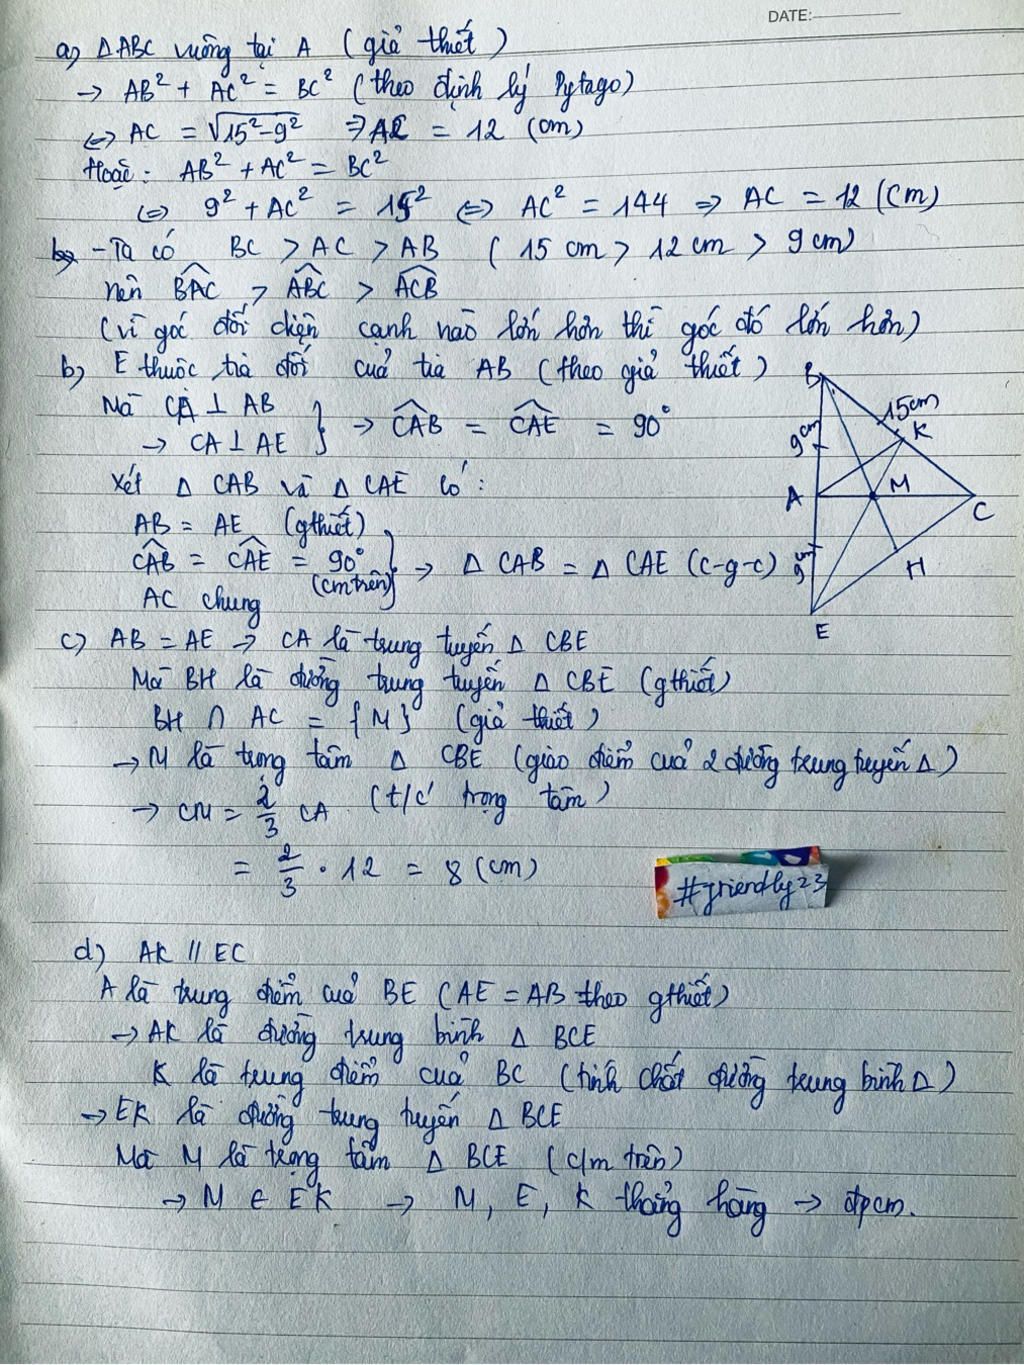 DATE:
a) Δ ABC vuông tại A (giả thiết)
→ AB² + AC² = BC² (theo định lý Pytago)
⇔ AC = √15²-9² ⇒ AC = 12 (cm)
Hoặc: AB² + AC² = BC²
⇔ 9² + AC² = 15² ⇔ AC² = 144 ⇒ AC = 12 (cm)
- Ta có BC > AC > AB (15 cm > 12 cm > 9 cm)
nên BAC > ABC > ACB
(vì góc đối diện cạnh nào lớn hơn thì góc đó lớn hơn)
b) E thuộc tia đối của tia AB (theo giả thiết)
Mà CA ⊥ AB
→ CA ⊥ AE } → CAB = CAE = 90°
Xét Δ CAB và Δ CAE có:
AB = AE (gthiết)
CAB = CAE = 90° (cm trên) } → Δ CAB = Δ CAE (c-g-c)
AC chung
B
15cm
K
9cm
A
M
C
9cm
H
E
c) AB = AE → CA là trung tuyến Δ CBE
Mà BH là đường trung tuyến Δ CBE (gthiết)
BH ∩ AC = {M} (giả thiết)
→ M là trọng tâm Δ CBE (giao điểm của 2 đường trung tuyến Δ)
→ CM = 2/3 CA (t/c trọng tâm)
= 2/3 . 12 = 8 (cm)
#friendly23
d) AK // EC
A là trung điểm của BE (AE = AB theo gthiết)
→ AK là đường trung bình Δ BCE
K là trung điểm của BC (tính chất đường trung bình Δ)
→ EK là đường trung tuyến Δ BCE
Mà M là trọng tâm Δ BCE (c/m trên)
→ M ∈ EK → M, E, K thẳng hàng → đpcm.